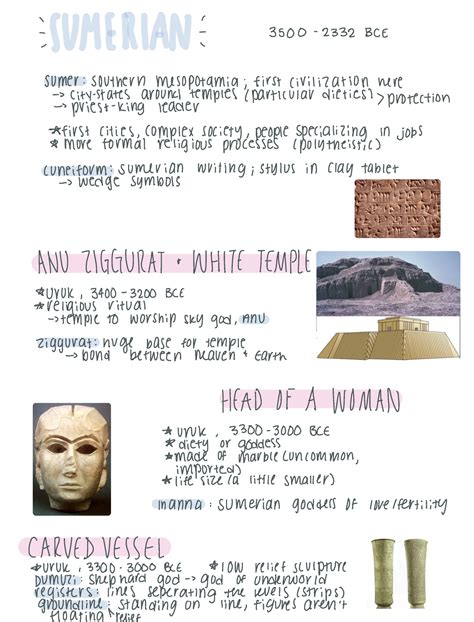 SUMERIAN
3500 - 2332 BCE
sumer: southern mesopotamia; first civilization here
→ city-states around temples (particular dieties) > protection
→ priest-king leader
*first cities, complex society, people specializing in jobs
* more formal religious processes (polytheistic)
cuneiform: sumerian writing; stylus in clay tablet
→ wedge symbols
ANU ZIGGURAT + WHITE TEMPLE
*uruk, 3400-3200 BCE
*religious ritual
→ temple to worship sky god, ANU
ziggurat: huge base for temple
→ bond between heaven + Earth
HEAD OF A WOMAN
* uruk, 3300-3000 BCE
* diety or goddess
*made of marble (uncommon,
imported)
* life size (a little smaller)
inanna: sumerian goddess of love/fertility
CARVED VESSEL
*uruk, 3300-3000 BCE
*low relief sculpture
Dumuzi: shephard god → god of underworld
registers: lines seperating the levels (strips)
groundline: standing on line, figures aren't
floating
relief